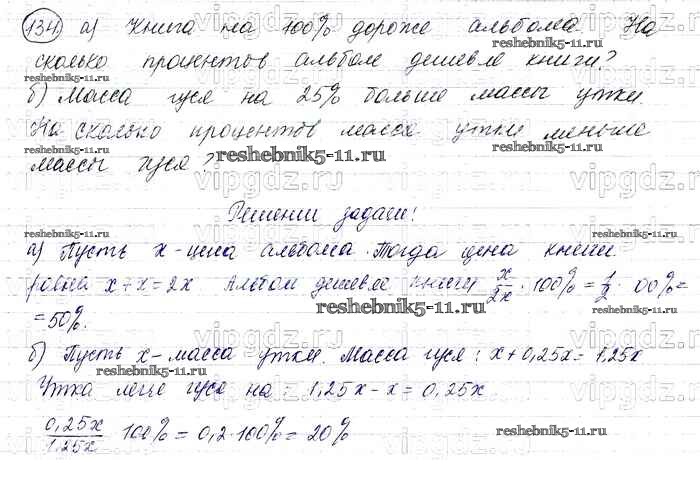 134. а) Книга на 100% дороже альбома. На
сколько процентов альбом дешевле книги?
б) Масса гуся на 25% больше массы утки.
На сколько процентов масса утки меньше
массы гуся?
reshebnik5-11.ru
Решении задачи!
а) Пусть x - цена альбома. Тогда цена книги
равна x + x = 2x Альбом дешевле книги x/2x · 100% = 1/2 · 00% =
= 50%.
б) Пусть x - масса утки. Масса гуся: x + 0,25x = 1,25x
Утка легче гуся на - 1,25x - x = 0,25x
0,25x/1,25x 100% = 0,2·100% = 20%
vipgdz.ru